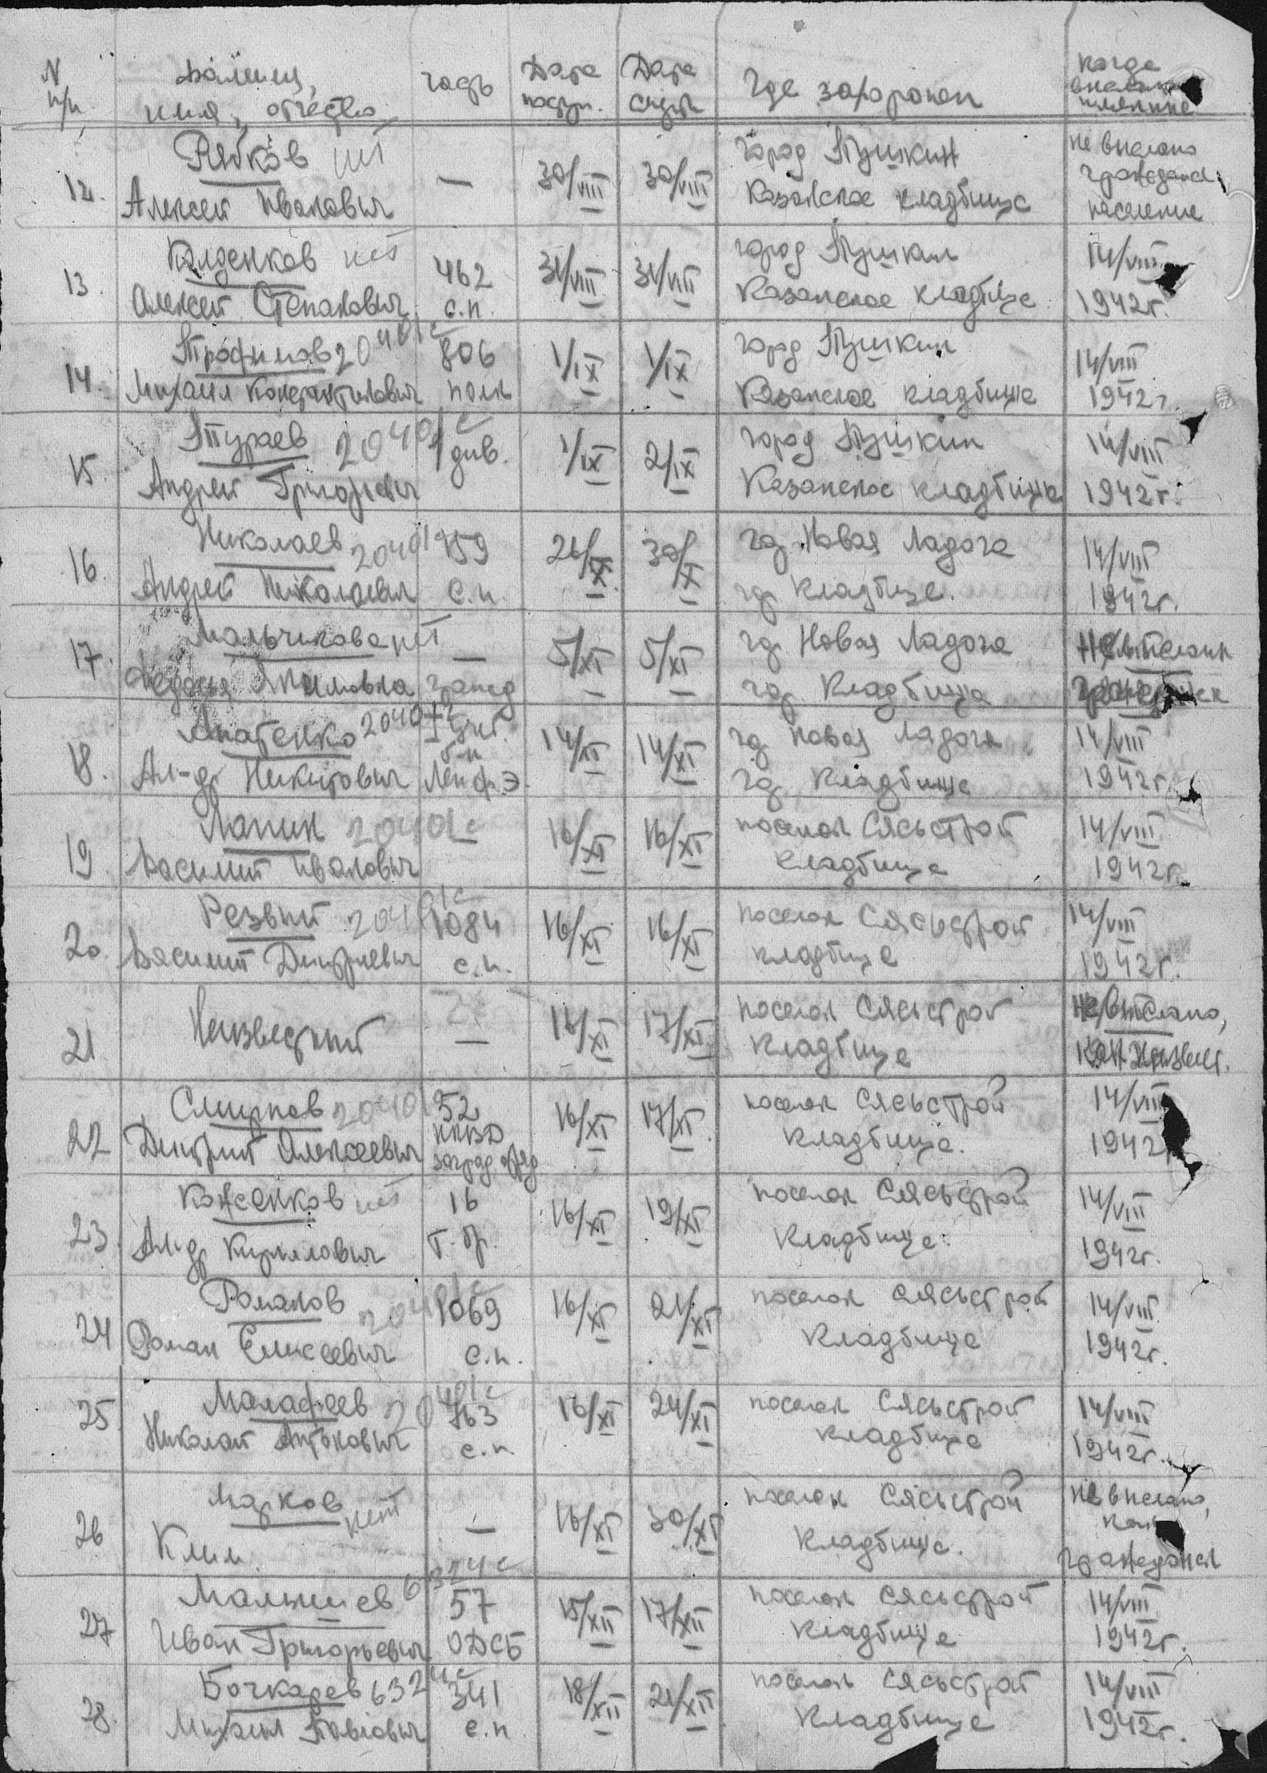 N п/п Фамилия, имя, отчество часть Дата поступ. Дата смерти Где захоронен когда выслано
12. Рябков нет — 30/VIII 30/VIII город Пушкин не выслано
Алексей Иванович Казанское кладбище гражданск. население
13 Колденков нет 462 31/VIII 31/VIII город Пушкин 14/VIII
Алексей Степанович с.п. Казанское кладбище 1942г.
14. Трофимов 20401с 806 1/IX 1/IX город Пушкин 14/VIII
Михаил Константинович полк Казанское кладбище 1942г.
15. Тураев 20401с 1 див. 1/IX 2/IX город Пушкин 14/VIII
Андрей Григорьевич Казанское кладбище 1942г.
16. Николаев 20401с 459 26/IX 30/X гор Новая Ладога 14/VIII
Андрей Николаевич с.п. гор кладбище. 1942г.
17. Мальчикова нет — 5/XI 5/XI гор Новая Ладога Не выслано
гражд гор кладбище
18. Апатенко 5/XI 14/XI 14/XI гор Новая Ладога 14/VIII
Ал-др Никитович Ленф.Э. гор кладбище 1942г.
19 Лапин 20401с 16/XI 16/XI поселок Сясьстрой 14/VIII
Василий Иванович кладбище 1942г.
20. Резвый 20401с 1084 16/XI 16/XI поселок Сясьстрой 14/VIII
Василий Дмитриевич с.п. кладбище 1942г.
21 Неизвестный — 16/XI 17/XI поселок Сясьстрой Не выслано,
кладбище как неизвест.
22 Смирнов 20401с 52 16/XI 17/XI поселок Сясьстрой 14/VIII
Дмитрий Алексеевич НКВД заград отряд кладбище. 1942
23. Коженков нет 16 16/XI 19/XI поселок Сясьстрой 14/VIII
Ал-др Кириллович т.бр. кладбище. 1942г.
24 Романов 20401с 1069 16/XI 21/XI поселок Сясьстрой 14/VIII
Роман Елисеевич с.п. кладбище 1942г.
25 Малафеев 20401с 463 16/XI 24/XI поселок Сясьстрой 14/VIII
Николай Антонович с.п. кладбище 1942г.
26 Марков нет — 16/XI 30/XI поселок Сясьстрой не выслано,
Клим кладбище. как гражданск
27 Малышев 6324с 57 15/XII 17/XII поселок Сясьстрой 14/VIII
Иван Григорьевич ОДСБ кладбище 1942г.
28. Бочкарев 6324с 341 18/XII 21/XII поселок Сясьстрой 14/VIII
Михаил Павлович с.п. кладбище 1942г.